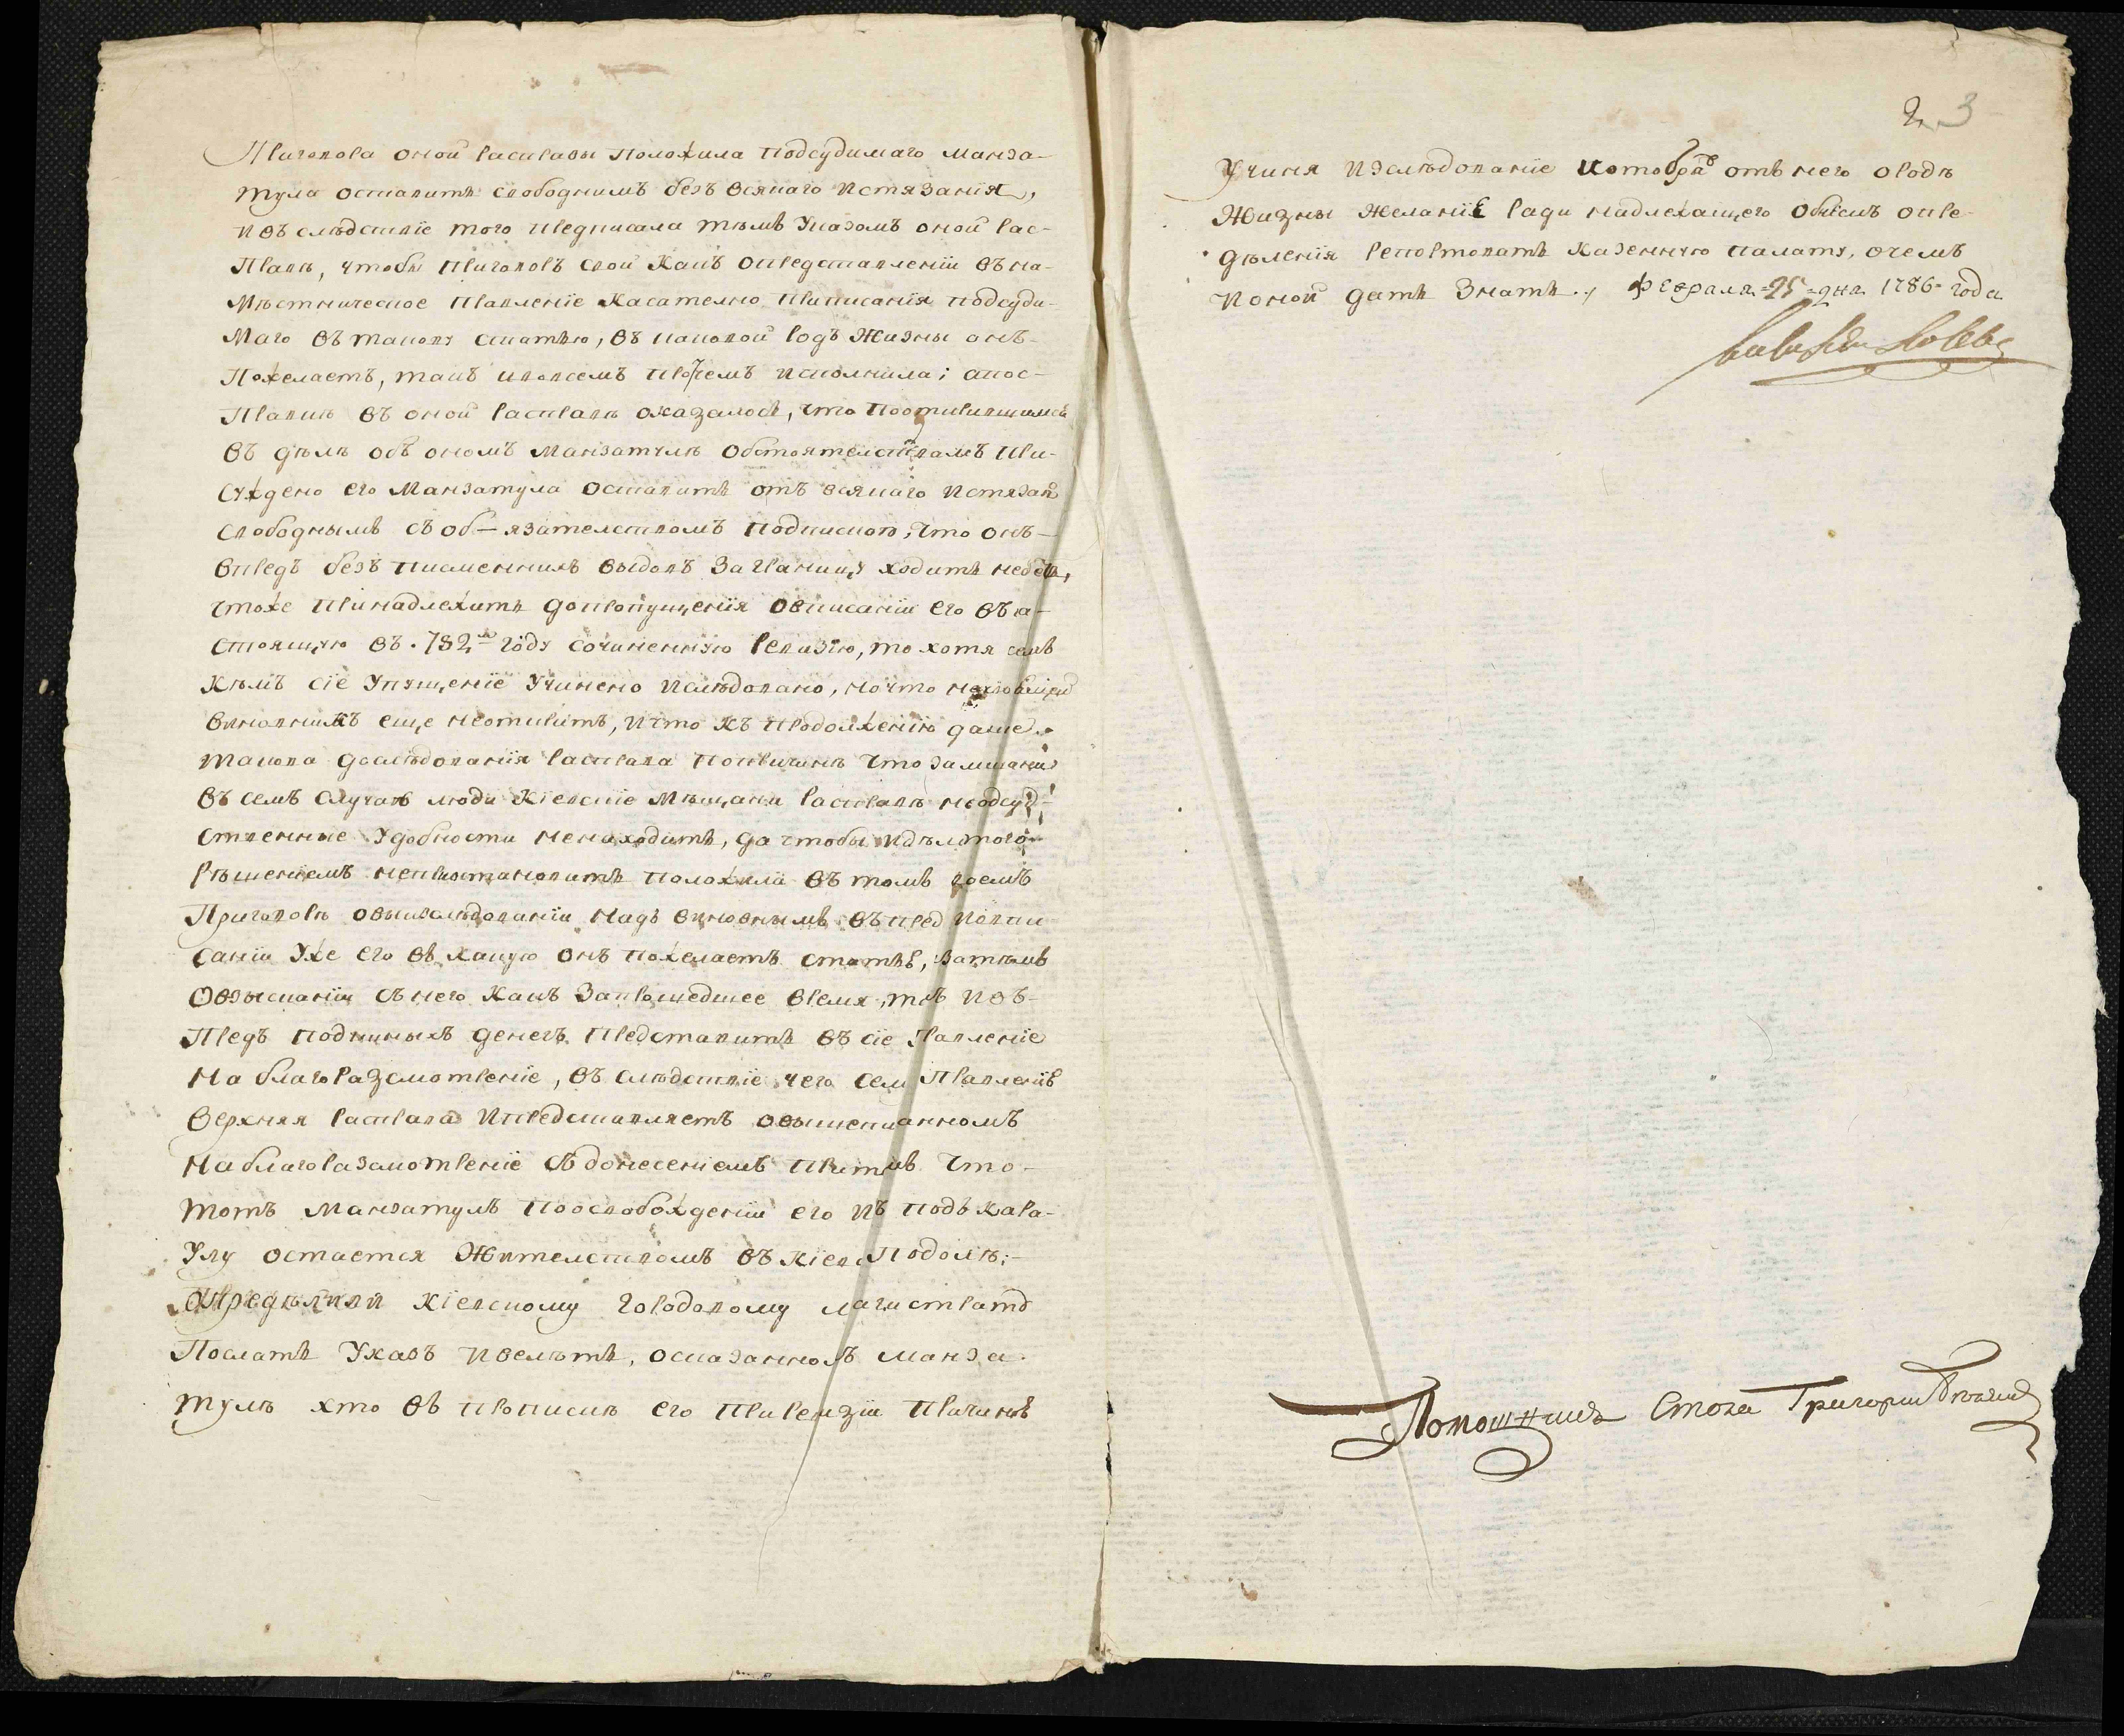 Приговора оной расправы положила подсудимаго Манза-
тула оставить свободнимъ безъ всякаго истязанія,
и въ слѣдствіе того предписала тѣмъ указомъ оной рас-
правѣ, чтобы приговоръ свой какъ опредставленіи въ на-
мѣстническое правленіе касателно приписанія подсуди-
маго въ такову статью, въ каковой родъ жизны онъ
пожелаетъ, такъ ивовсемъ прочемъ исполнила; апос-
правкѣ въ оной расправѣ оказалось, что пооткрившимся
въ дѣлѣ объ ономъ Манзатулѣ обстоятелствамъ при-
суждено его Манзатула оставить отъ всякаго истязанія
свободнымъ съ об-язателствомъ подпискою, что онъ
впредъ безъ писменнихъ видовъ заграницу ходить небудетъ,
чтоже принадлежитъ допропущенія овписаніи его въ на-
стоящую въ .782м году сочиненную ревизію, то хотя
кѣмъ сіе упущеніе учинено ислѣдовано, но что
виновникъ еще неоткритъ, и что къ продолженію далше
такова дослѣдованія расправа попричинѣ что замѣшанни
въ семъ случаѣ люди кіевскіе мѣщани расправѣ неподсуд-
ственные удобности ненаходитъ, да чтобы идѣлъ того
рѣшеніемъ неприостановить положила въ томъ своемъ
приговорѣ овыизслѣдованіи надъ виновнымъ въпред иовпи-
саніи уже его въ какую онъ пожелаетъ статью, затѣмъ
овзысканіи съ него какъ запрошедшее время, такъ ивъ-
предъ подушныхъ денегъ представить въ сіе правленіе
на благоразсмотреніе, въ слѣдствіе чего сему правленію
верхняя расправа ипредставляетъ овышеписанномъ
на благоразсмотреніе съ донесеніемъ притомъ что
тотъ Манзатулъ поосвобожденіи его изъ подъ кара-
улу остается жителствомъ въ кіевоподолѣ;
опредѣлили кіевскому городовому магистрату
послать указъ ивелѣть, осказанномъ Манза-
тулѣ хто въ прописки его приревизіи причиною
2 3
учиня изслѣдованіе иотобравъ отъ него ородѣ
жизны желаніе ради надлежащего обнемъ опре-
дѣленія репортовать казенную палату, очемъ
ионой дать знать ., февраля 25 дня 1786 года
Помощникъ Стола Григорий